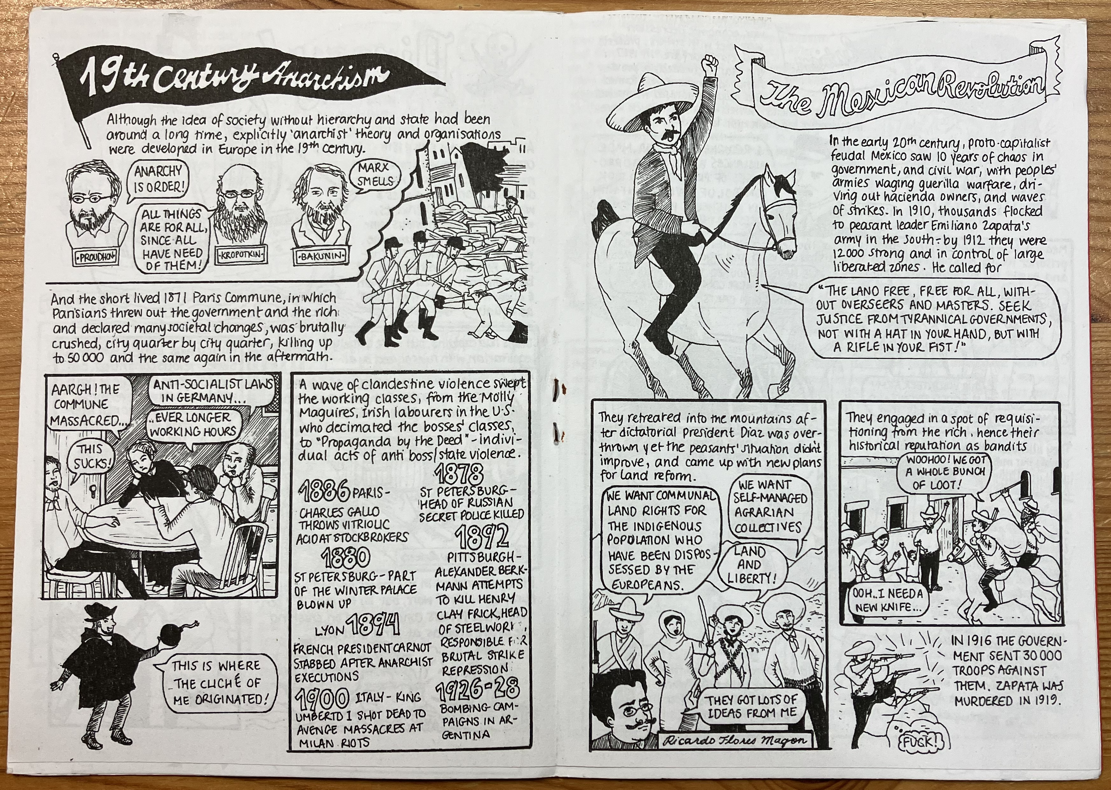 19th Century Anarchism
Although the idea of society without hierarchy and state had been
around a long time, explicitly 'anarchist' theory and organisations
were developed in Europe in the 19th century.
ANARCHY
IS ORDER!
ALL THINGS
ARE FOR ALL,
SINCE ALL
HAVE NEED
OF THEM!
MARX
SMELLS
-PROUDHON-
-KROPOTKIN-
-BAKUNIN-
And the short lived 1871 Paris Commune, in which
Parisians threw out the government and the rich
and declared many societal changes, was brutally
crushed, city quarter by city quarter, killing up
to 50 000 and the same again in the aftermath.
AARGH! THE
COMMUNE
MASSACRED...
ANTI-SOCIALIST LAWS
IN GERMANY...
..EVER LONGER
WORKING HOURS
THIS
SUCKS!
THIS IS WHERE
THE CLICHÉ OF
ME ORIGINATED!
A wave of clandestine violence swept
the working classes, from the Molly
Maguires, Irish labourers in the U.S.
who decimated the bosses' classes,
to "Propaganda by the Deed" - indivi-
dual acts of anti boss/state violence.
1886 PARIS-
CHARLES GALLO
THROWS VITRIOLIC
ACID AT STOCKBROKERS
1880
ST PETERSBURG - PART
OF THE WINTER PALACE
BLOWN UP
LYON 1894
FRENCH PRESIDENT CARNOT
STABBED AFTER ANARCHIST
EXECUTIONS
1900 ITALY - KING
UMBERTO I SHOT DEAD TO
AVENGE MASSACRES AT
MILAN RIOTS
1878
ST PETERSBURG-
HEAD OF RUSSIAN
SECRET POLICE KILLED
1892
PITTSBURGH-
ALEXANDER BERK-
MANN ATTEMPTS
TO KILL HENRY
CLAY FRICK, HEAD
OF STEELWORKS,
RESPONSIBLE FOR
BRUTAL STRIKE
REPRESSION
1926-28
BOMBING CAM-
PAIGNS IN AR-
GENTINA
The Mexican Revolution
In the early 20th century, proto-capitalist
feudal Mexico saw 10 years of chaos in
government, and civil war, with peoples'
armies waging guerilla warfare, dri-
ving out hacienda owners, and waves
of strikes. In 1910, thousands flocked
to peasant leader Emiliano Zapata's
army in the South - by 1912 they were
12000 strong and in control of large
liberated zones. He called for
"THE LAND FREE, FREE FOR ALL, WITH-
OUT OVERSEERS AND MASTERS. SEEK
JUSTICE FROM TYRANNICAL GOVERNMENTS,
NOT WITH A HAT IN YOUR HAND, BUT WITH
A RIFLE IN YOUR FIST!"
They retreated into the mountains af-
ter dictatorial president Diaz was over-
thrown yet the peasants' situation didn't
improve, and came up with new plans
for land reform.
WE WANT COMMUNAL
LAND RIGHTS FOR
THE INDIGENOUS
POPULATION WHO
HAVE BEEN DISPOS-
SESSED BY THE
EUROPEANS.
WE WANT
SELF-MANAGED
AGRARIAN
COLLECTIVES
LAND
AND
LIBERTY!
THEY GOT LOTS OF
IDEAS FROM ME
Ricardo Flores Magon
They engaged in a spot of requisi-
tioning from the rich, hence their
historical reputation as bandits
WOOHOO! WE GOT
A WHOLE BUNCH
OF LOOT!
OOH.. I NEED A
NEW KNIFE...
IN 1916 THE GOVERN-
MENT SENT 30 000
TROOPS AGAINST
THEM. ZAPATA WAS
MURDERED IN 1919.
FUCK!